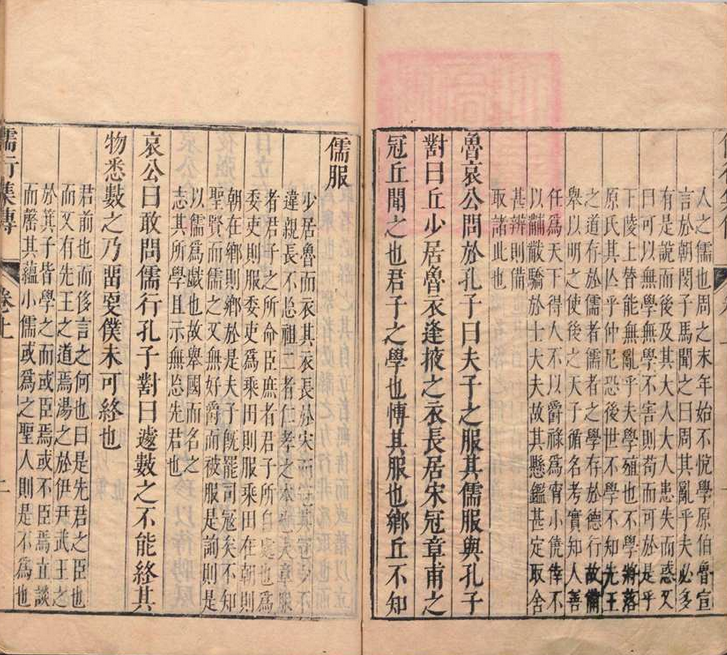 人之儒也周之末年始不悅學原伯魯宣
言於朝閔子馬聞之曰周其亂乎夫必多
有是說而後及其大人大人患失而惑又
曰可以無學無學不害則苟而可於是乎
下陵上替能無亂乎夫學殖也不學將落
原氏其亾乎仲尼恐後世不學不知先王
之道存於儒者儒者之學存於德行故備
舉以明之使後之天子循名考實知人善
任為天下得人人不以爵祿為宵小僥倖不
以黼黻驕於士大夫故其懸鑑甚定取舍
甚辨則備
取諸此也
魯哀公問於孔子曰夫子之服其儒服與孔子
對曰丘少居魯衣逢掖之衣長居宋冠章甫之
冠丘聞之也君子之學也博其服也鄉丘不知
儒服
少居魯而衣長於宋而冠不
違親長不忘祖二者仁孝之本章服
者君子之所命臣庶者君子所自處也為
委吏則服委吏為乘田則服乘田在朝則
朝在鄉則鄉於是夫子旣罷司寇矣不知
聖賢而儒之又無好爵而被服是詢則是
以儒為戲也故舉國而名之
志其所學且示無忘先君也
哀公曰敢問儒行孔子對曰遽數之不能終其
物悉數之乃畱更僕未可終也
君前也而侈言之何也曰是先君之臣也
而又有先王之道焉湯之於伊尹武王之
於箕子皆學之而或臣焉或不臣焉直談
而罄其蘊小儒或為之聖人則是不為也
儒行集傳 卷上